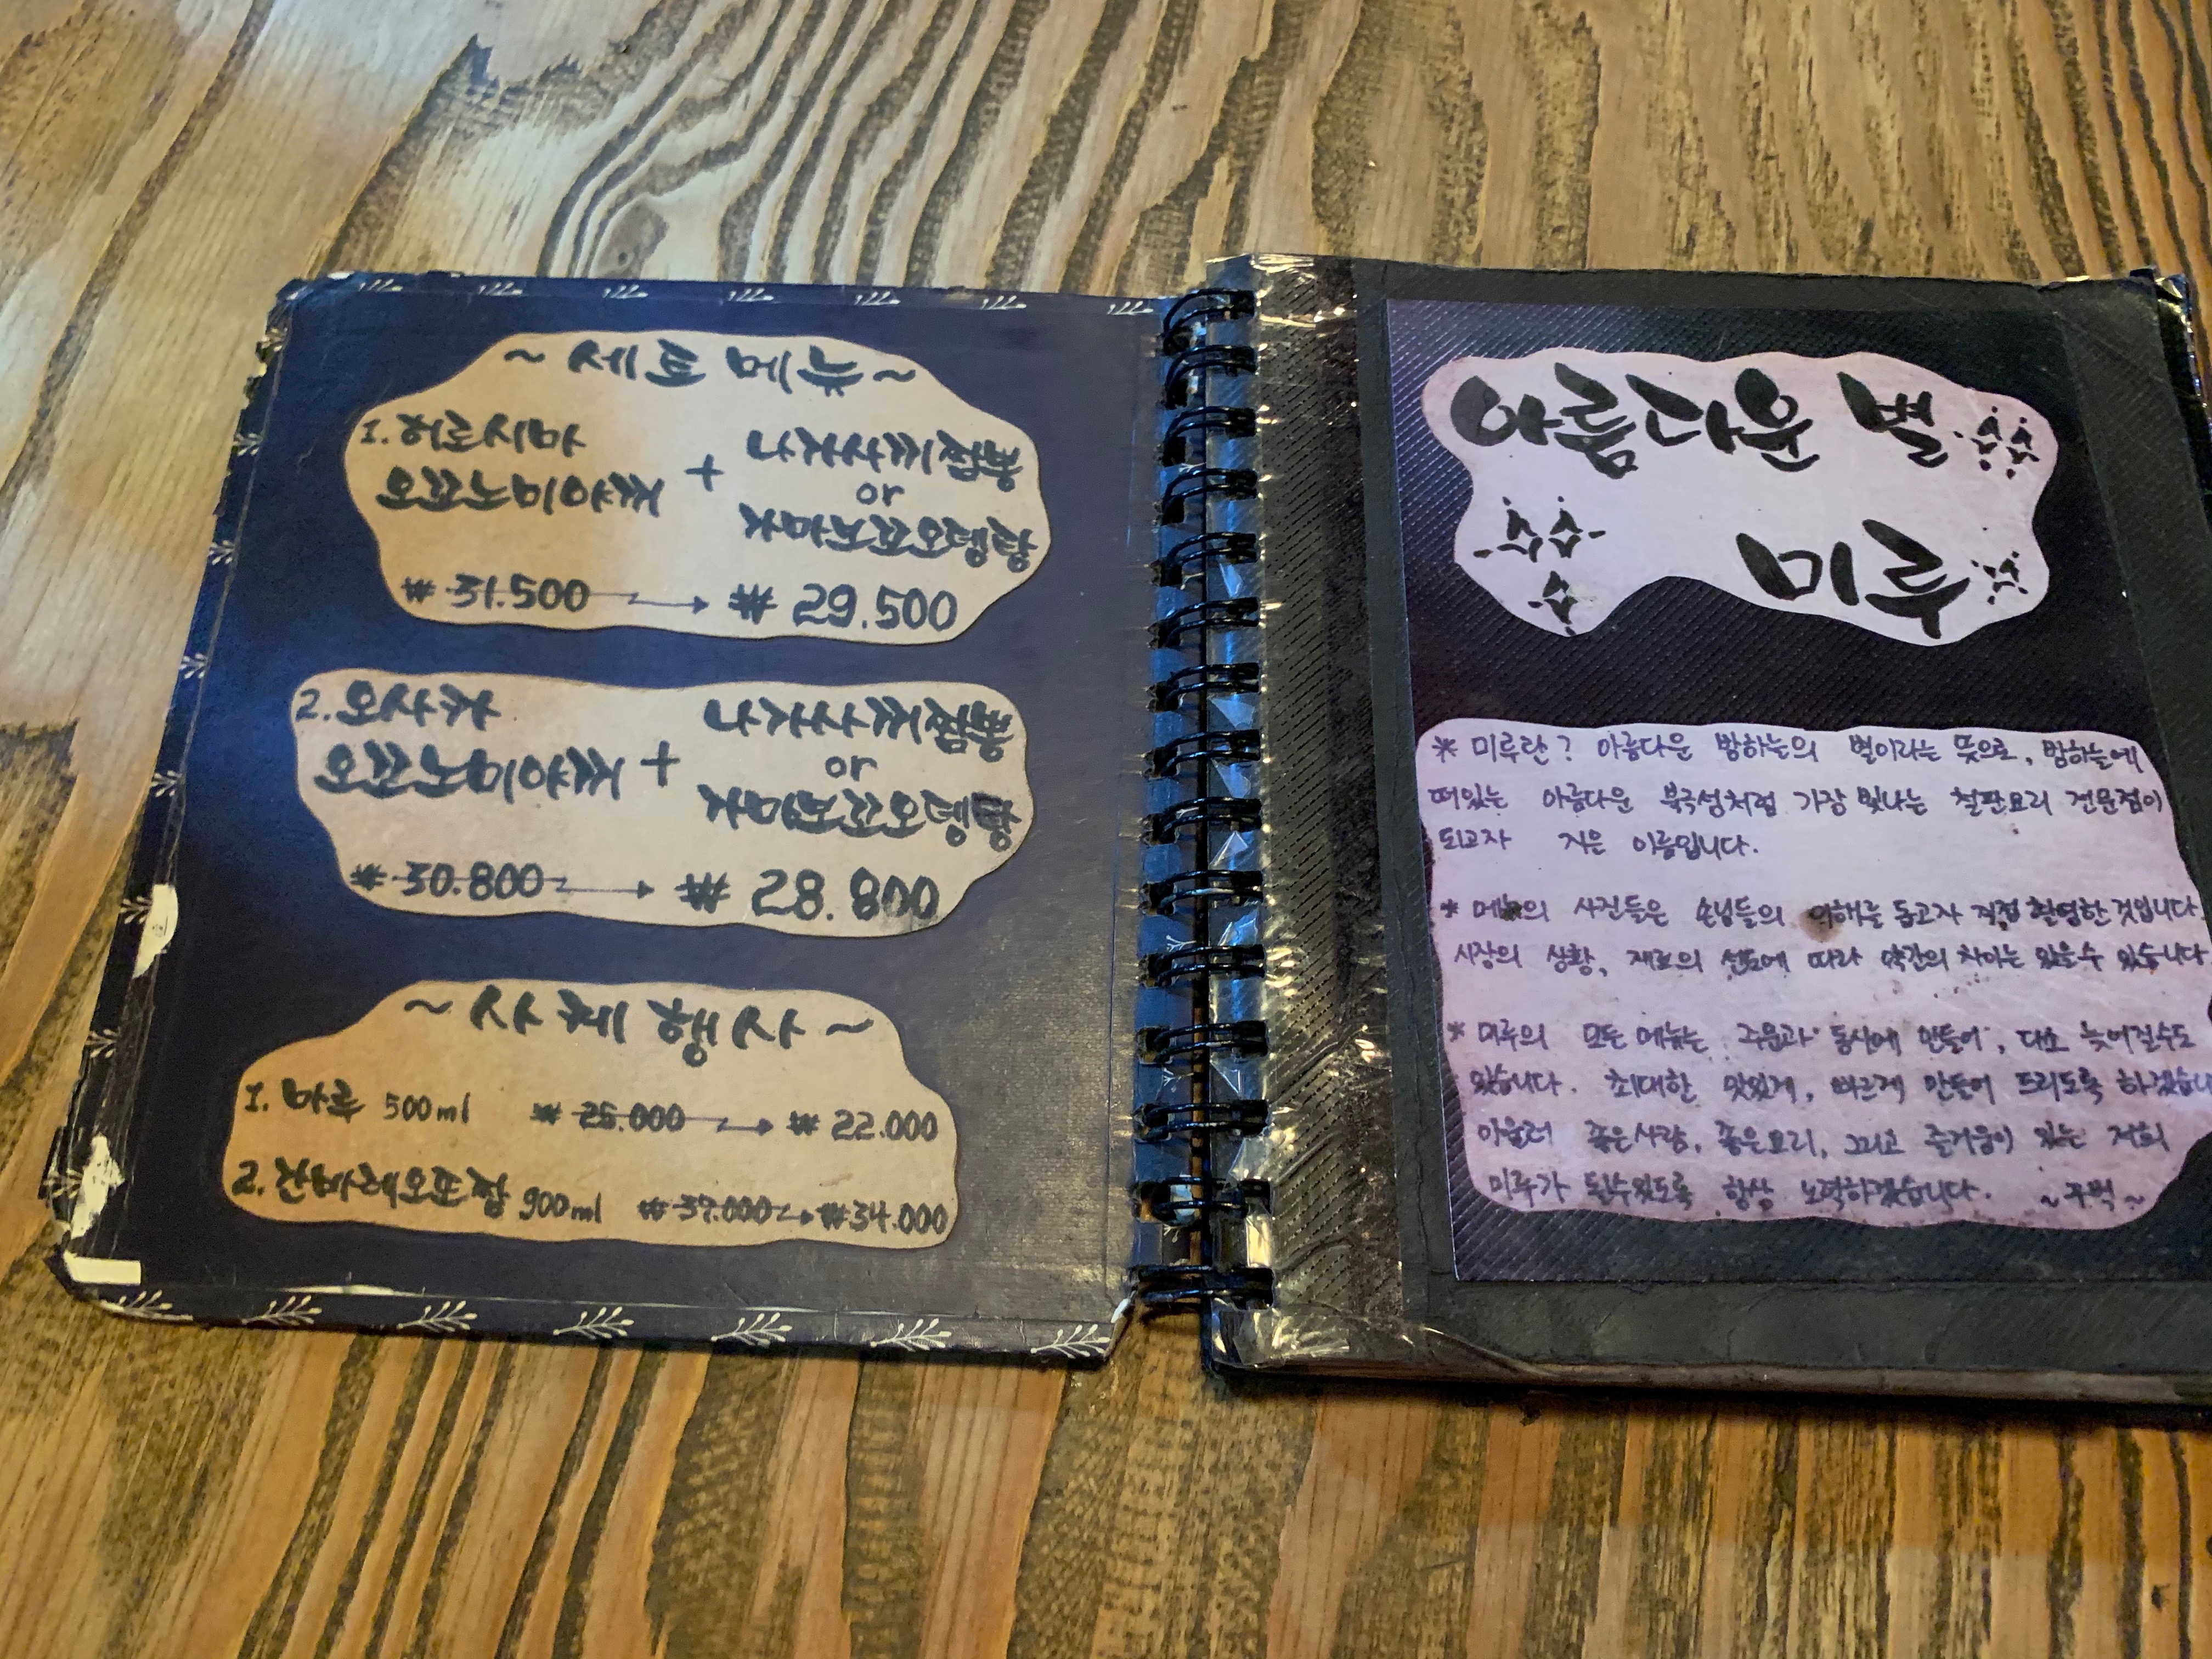 ~ 세트 메뉴 ~
1. 히로시마
오꼬노미야끼
+
나가사끼짬뽕
or
가마보꼬오뎅탕
₩ 31.500 → ₩ 29.500
2. 오사카
오꼬노미야끼
+
나가사끼짬뽕
or
가마보꼬오뎅탕
₩ 30.800 → ₩ 28.800
~ 사케 행사 ~
1. 마루 500ml ₩ 25.000 → ₩ 22.000
2. 간바레오또짱 900ml ₩ 37.000 → ₩ 34.000
아름다운 별
미루
* 미루란? 아름다운 밤하늘의 별이라는 뜻으로, 밤하늘에
떠있는 아름다운 북극성처럼 가장 빛나는 철판요리 전문점이
되고자 지은 이름입니다.
* 메뉴의 사진들은 손님들의 이해를 돕고자 직접 촬영한 것입니다.
시장의 상황, 재료의 선도에 따라 약간의 차이는 있을수 있습니다
* 미루의 모든 메뉴는 주문과 동시에 만들어, 다소 늦어질수도
있습니다. 최대한 맛있게, 빠르게 만들어 드리도록 하겠습니
아울러 좋은사람, 좋은요리, 그리고 즐거움이 있는 저희
미루가 될수있도록 항상 노력하겠습니다. ~꾸벅~